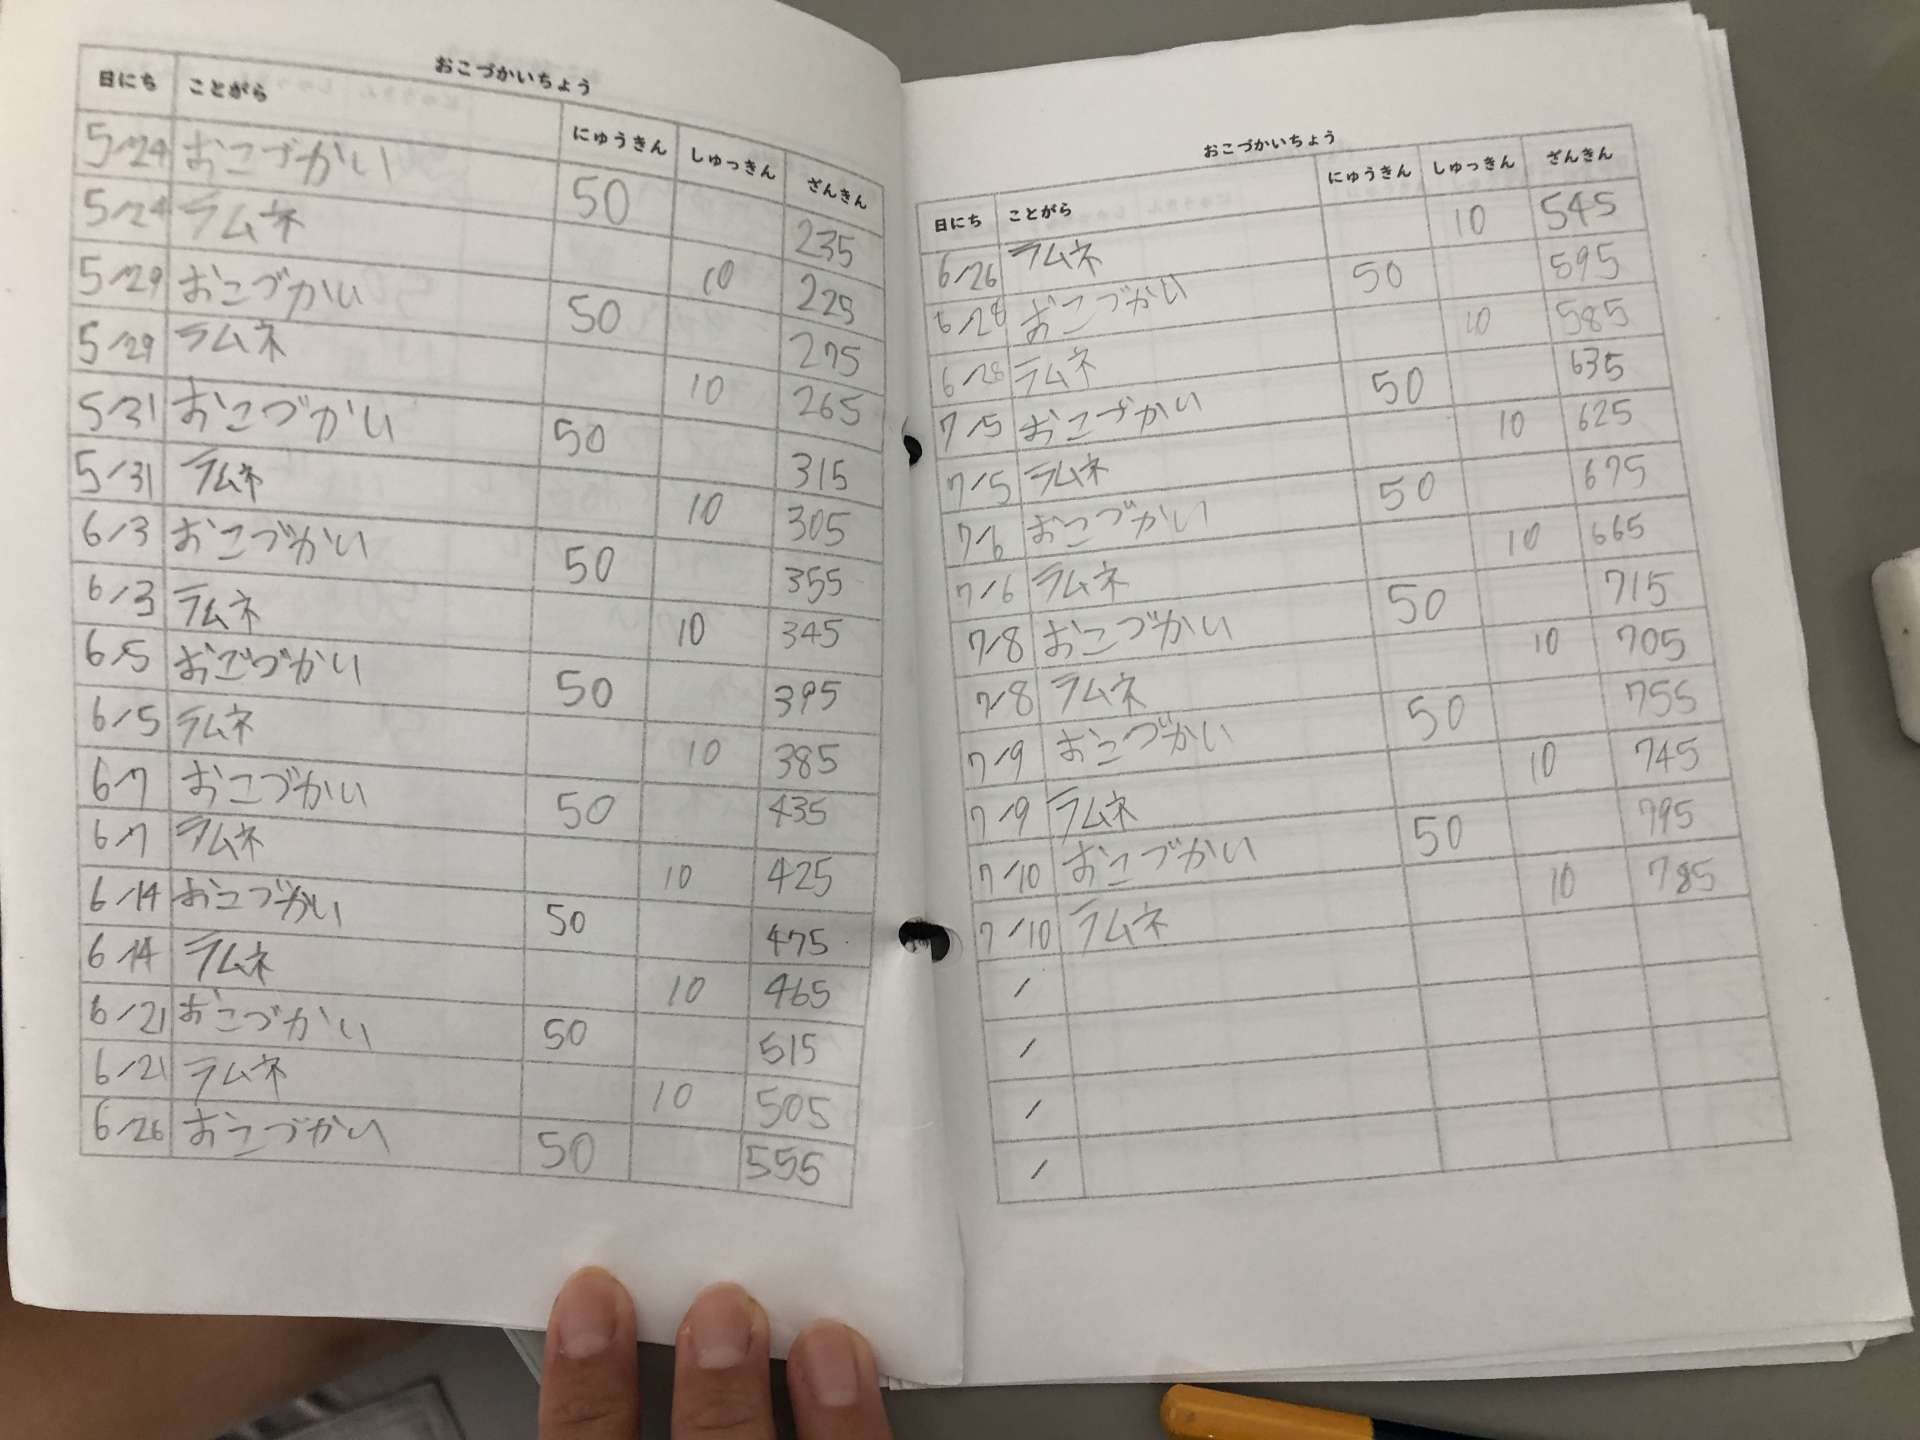 おこづかいちょう
日にち ことがら にゅうきん しゅっきん ざんきん
5/24 おこづかい 50 235
5/24 ラムネ 10 225
5/29 おこづかい 50 275
5/29 ラムネ 10 265
5/31 おこづかい 50 315
5/31 ラムネ 10 305
6/3 おこづかい 50 355
6/3 ラムネ 10 345
6/5 おこづかい 50 395
6/5 ラムネ 10 385
6/7 おこづかい 50 435
6/7 ラムネ 10 425
6/14 おこづかい 50 475
6/14 ラムネ 10 465
6/21 おこづかい 50 515
6/21 ラムネ 10 505
6/26 おこづかい 50 555
おこづかいちょう
日にち ことがら にゅうきん しゅっきん ざんきん
6/26 ラムネ 10 545
6/28 おこづかい 50 595
6/28 ラムネ 10 585
7/5 おこづかい 50 635
7/5 ラムネ 10 625
7/6 おこづかい 50 675
7/6 ラムネ 10 665
7/8 おこづかい 50 715
7/8 ラムネ 10 705
7/9 おこづかい 50 755
7/9 ラムネ 10 745
7/10 おこづかい 50 795
7/10 ラムネ 10 785
/
/
/
/